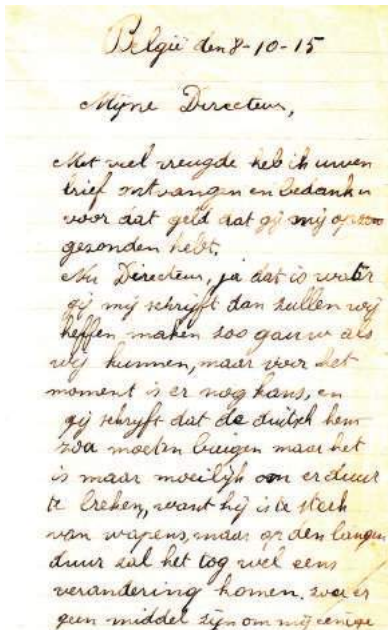 België den 8-10-15
Mijne Directeur,
Met veel vreugde heb ik uwen
brief ontvangen en bedank u
voor dat geld dat gij mij op
gezonden hebt.
Nu Directeur, ja dat is
gij mij schrijft dan zullen wij
maken zoo gauw als
wij kunnen, maar voor het
moment is er nog kans, en
gij schrijft dat de duitsch hem
zou moeten buigen maar het
is maar moeilijk om er duur
te breken, want hij is te sterk
van wapens, maar op den langen
duur zal het tog wel eens
verandering komen. zou er
geen middel zijn om mij eenige